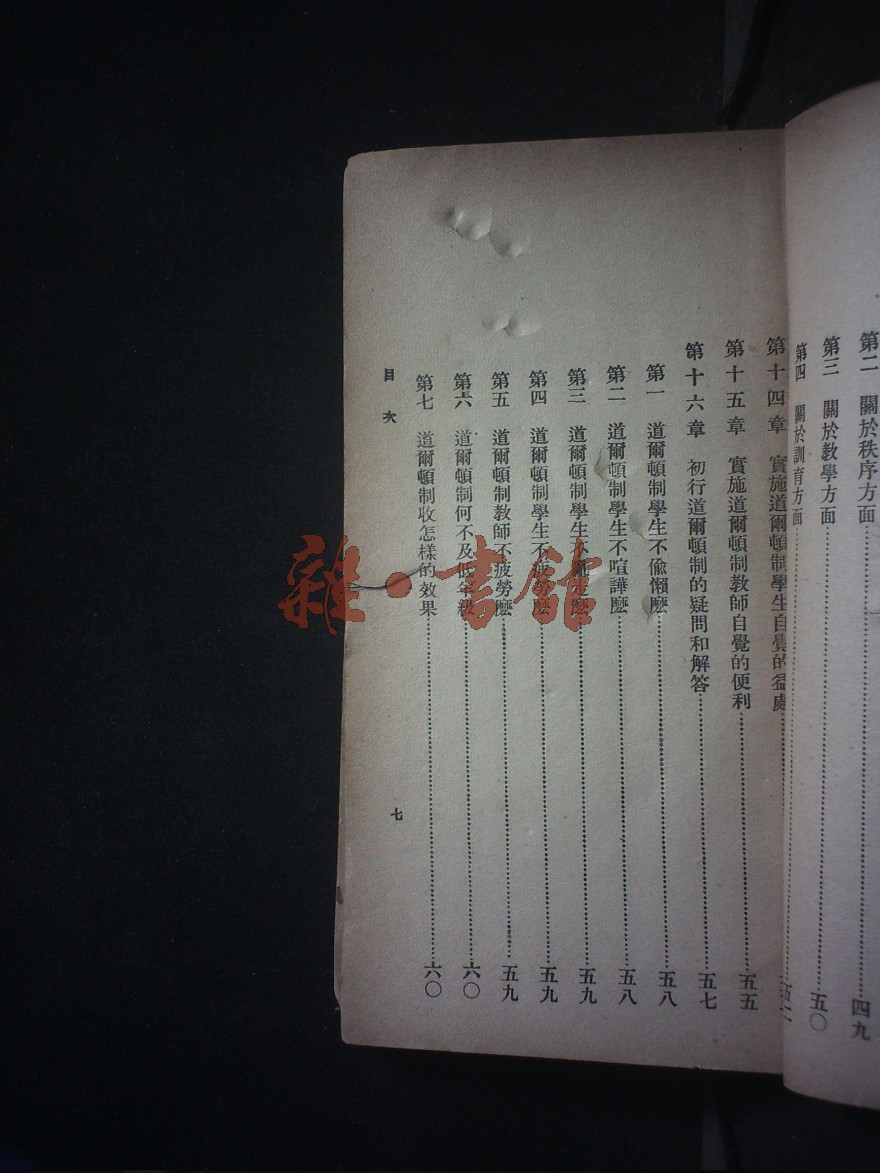 第二　關於秩序方面……四九
第三　關於教學方面……五〇
第四　關於訓育方面……
第十四章　實施道爾頓制學生自覺的益處……五二
第十五章　實施道爾頓制教師自覺的便利……五五
第十六章　初行道爾頓制的疑問和解答……五七
第一　道爾頓制學生不偷懶麽……五八
第二　道爾頓制學生不喧譁麽……五八
第三　道爾頓制學生不亂走麽……五九
第四　道爾頓制學生不疲勞麽……五九
第五　道爾頓制教師不疲勞麽……五九
第六　道爾頓制何不及低年級……六〇
第七　道爾頓制收怎樣的效果……六〇
目次
七
雜·書館